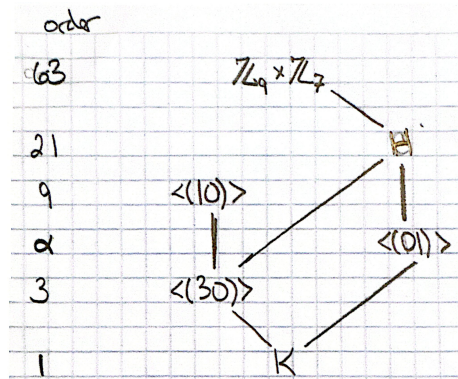 order
63 ℤ₉ × ℤ₇
21 H
9 <(10)>
α <(01)>
3 <(30)>
1 K